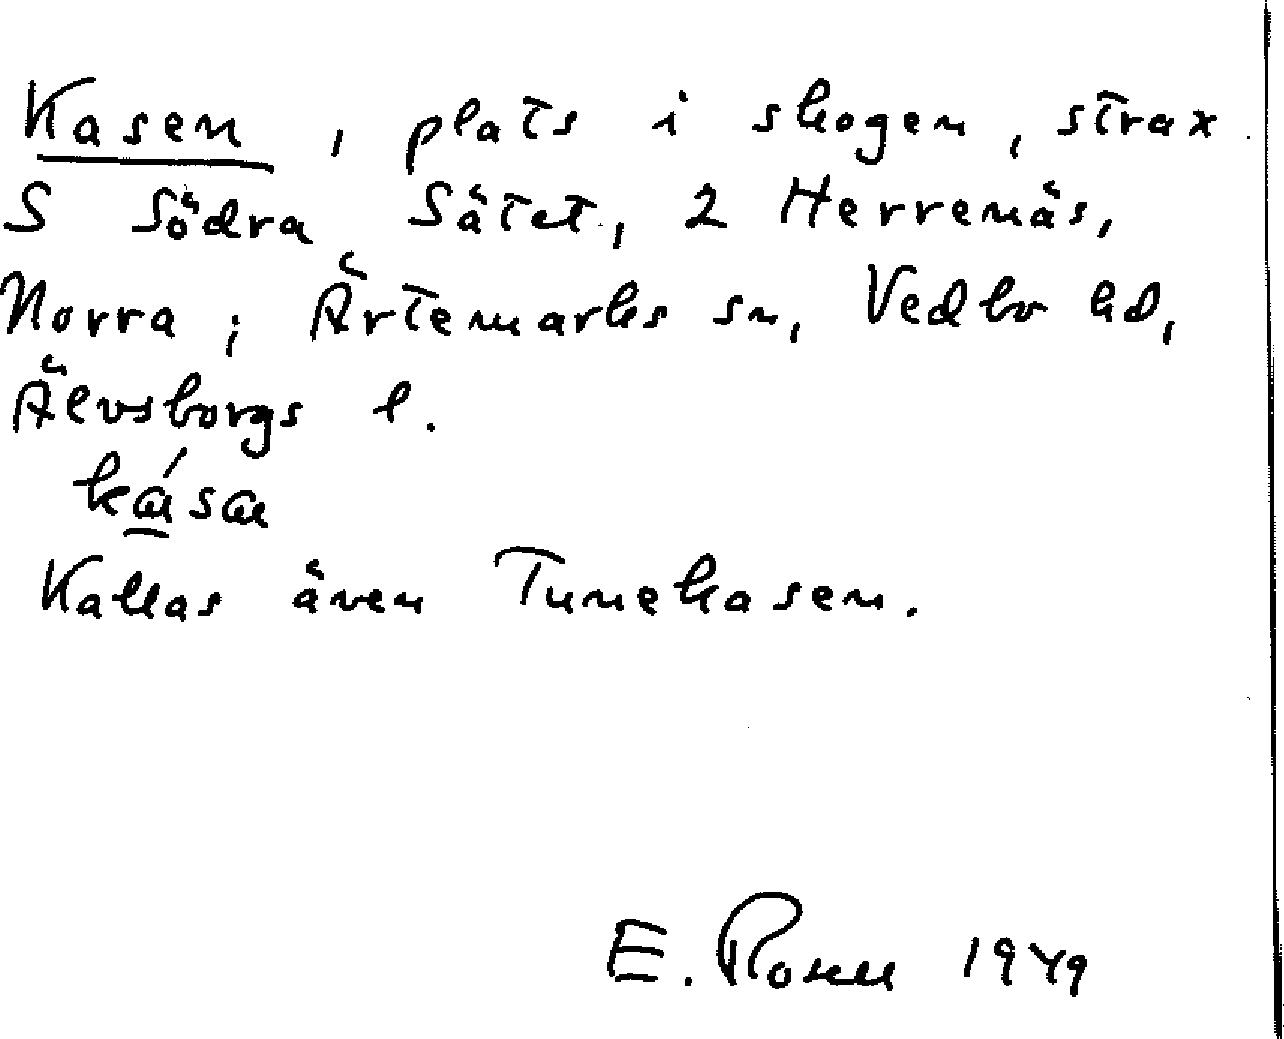 Kasen, plats i skogen, strax
S Södra Sätet, 2 Herrenäs,
Norra; Ärtemarks sn, Vedbo hd,
Älvsborgs l.
Kallas även Tunekasen.
E. Rosell 1949